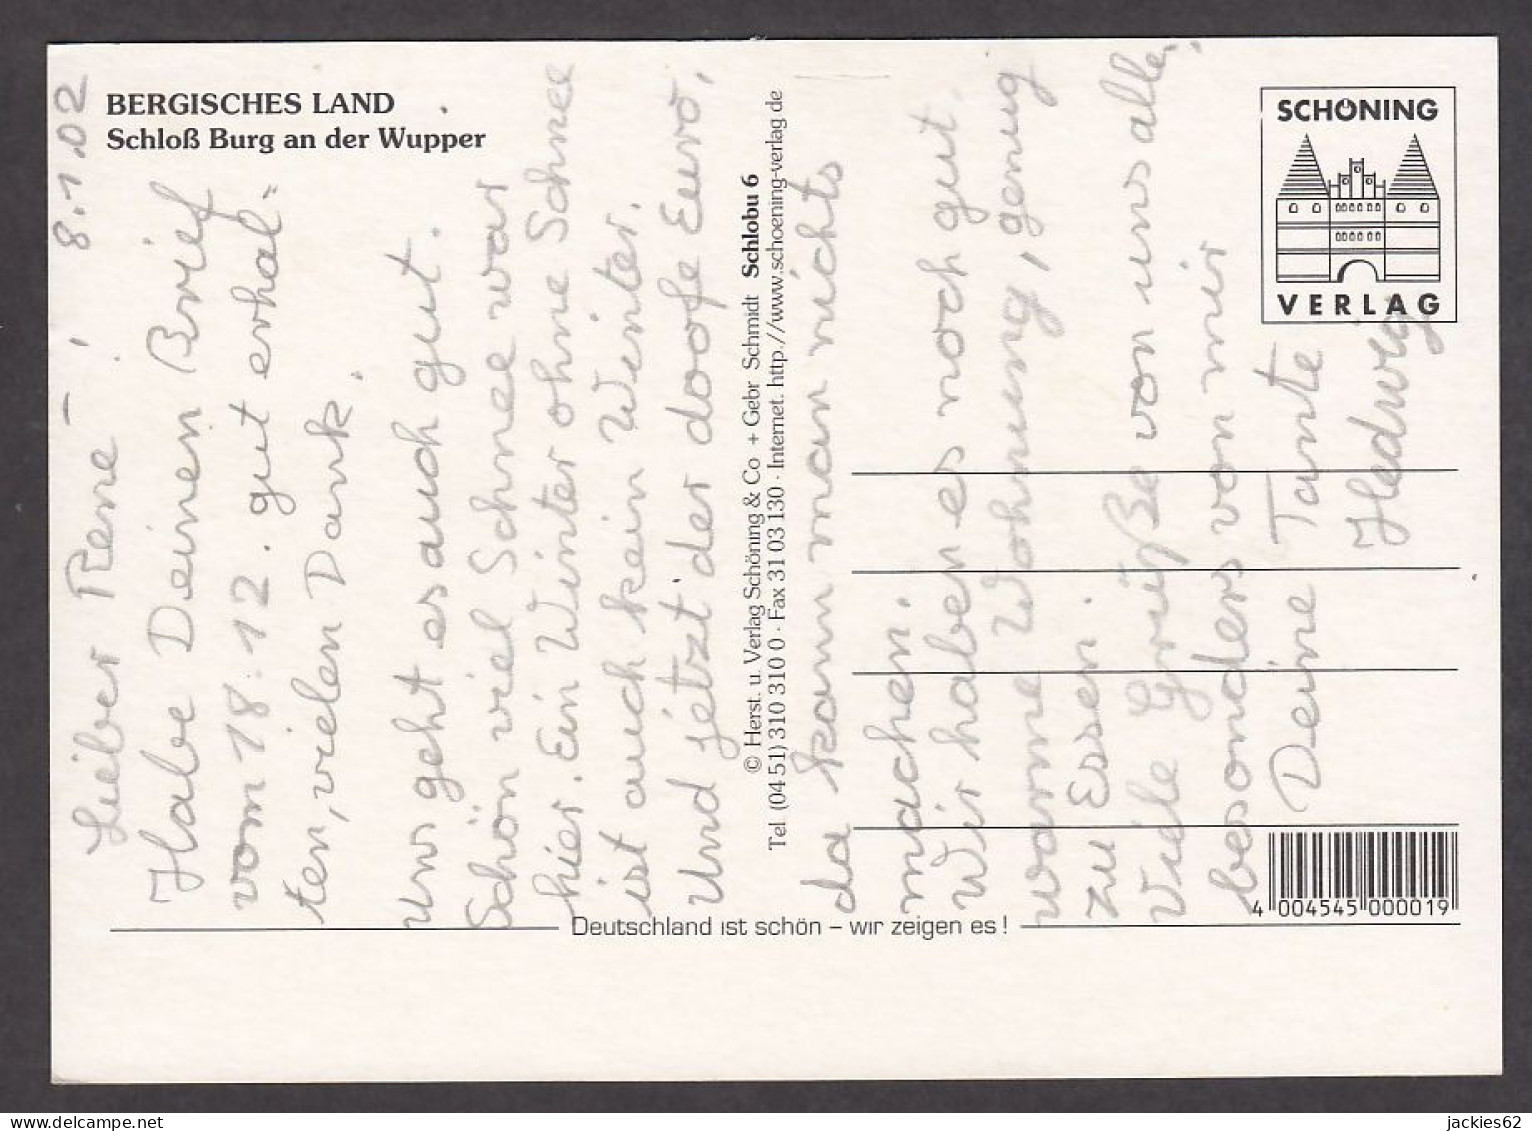 BERGISCHES LAND
Schloß Burg an der Wupper
8.1.02
Lieber René!
Habe Deinen Brief
vom 18.12. gut erhal=
ten, vielen Dank.
Uns geht es auch gut.
Schön viel Schnee war
hier. Ein Winter ohne Schnee
ist auch kein Winter.
Und jetzt der doofe Euro,
da kann man nichts
machen.
Wir haben es noch gut,
warme Wohnung, genug
zu Essen.
Viele Grüße von uns allen,
besonders von mir
Deine Tante
Hedwig
© Herst. u. Verlag Schöning & Co + Gebr Schmidt Schlobu 6
Tel (04 51) 310 310 0 · Fax 31 03 130 · Internet. http.//www.schoening-verlag de
SCHÖNING
VERLAG
4 004545 000019
Deutschland ist schön – wir zeigen es !
jackies62